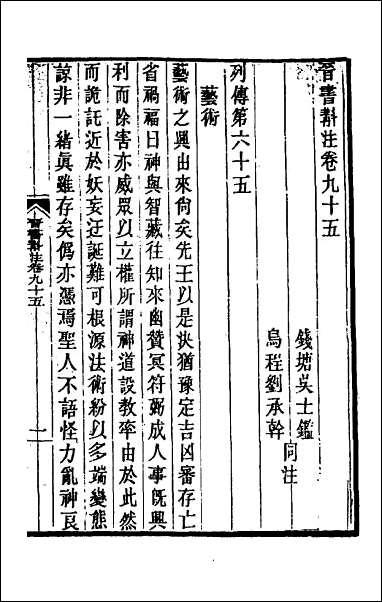 晉書斠注卷九十五
錢塘吳士鑑
烏程劉承幹
同注
列傳第六十五
藝術
藝術之興由來尙矣先王以是決猶豫定吉凶審存亡
省禍福曰神與智藏往知來幽贊冥符弼成人事旣興
利而除害亦威眾以立權所謂神道設教率由於此然
而詭託近於妖妄迂誕難可根源法術紛以多端變態
諒非一緒眞雖存矣僞亦憑焉聖人不語怪力亂神良
晉書斠注卷九十五
一